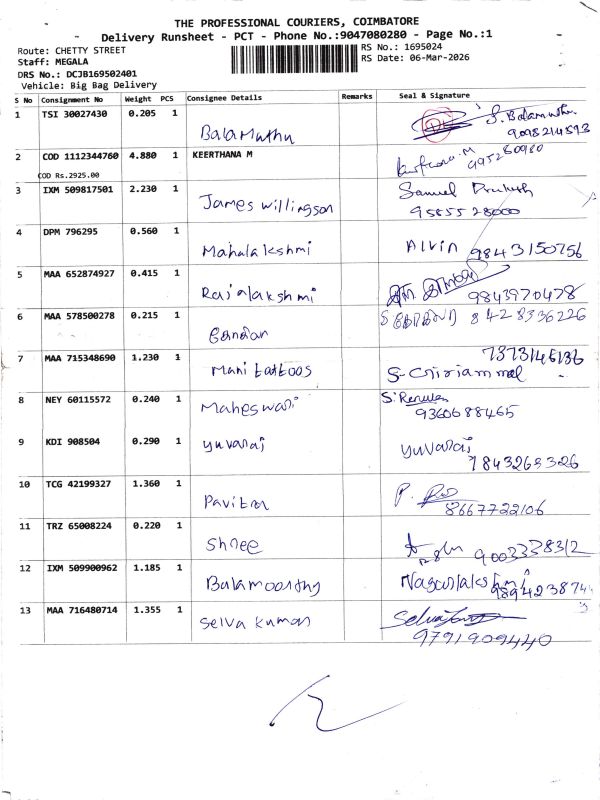 THE PROFESSIONAL COURIERS, COIMBATORE
Delivery Runsheet - PCT - Phone No.:9047080280 - Page No.:1
Route: CHETTY STREET
RS No.: 1695024
Staff: MEGALA
RS Date: 06-Mar-2026
DRS No.: DCJB169502401
Vehicle: Big Bag Delivery
S No Consignment No Weight PCS Consignee Details Remarks Seal & Signature
1 TSI 30027430 0.205 1 Balamuthu S. Balamuthu
9098214593
2 COD 1112344760 4.880 1 KEERTHANA M
COD Rs.2925.00
3 IXM 509817501 2.230 1 James willingson Samuel
9585528000
4 DPM 796295 0.560 1 Mahalakshmi Alvin 9843150756
5 MAA 652874927 0.415 1 Rajalakshmi 9843970478
6 MAA 578500278 0.215 1 8428336226
7 MAA 715348690 1.230 1 Mani tattoos 7373146136
S. Giriammal
8 NEY 60115572 0.240 1 Maheswari
9360688465
9 KDI 908504 0.290 1 yuvaraj yuvaraj
9843263326
10 TCG 42199327 1.360 1 Pavitra P.
8667722106
11 TRZ 65008224 0.220 1 Shree 9003338312
12 IXM 509900962 1.185 1 Balamoorthy Nagarlakshmi
13 MAA 716480714 1.355 1 Selva kumar
9791909440